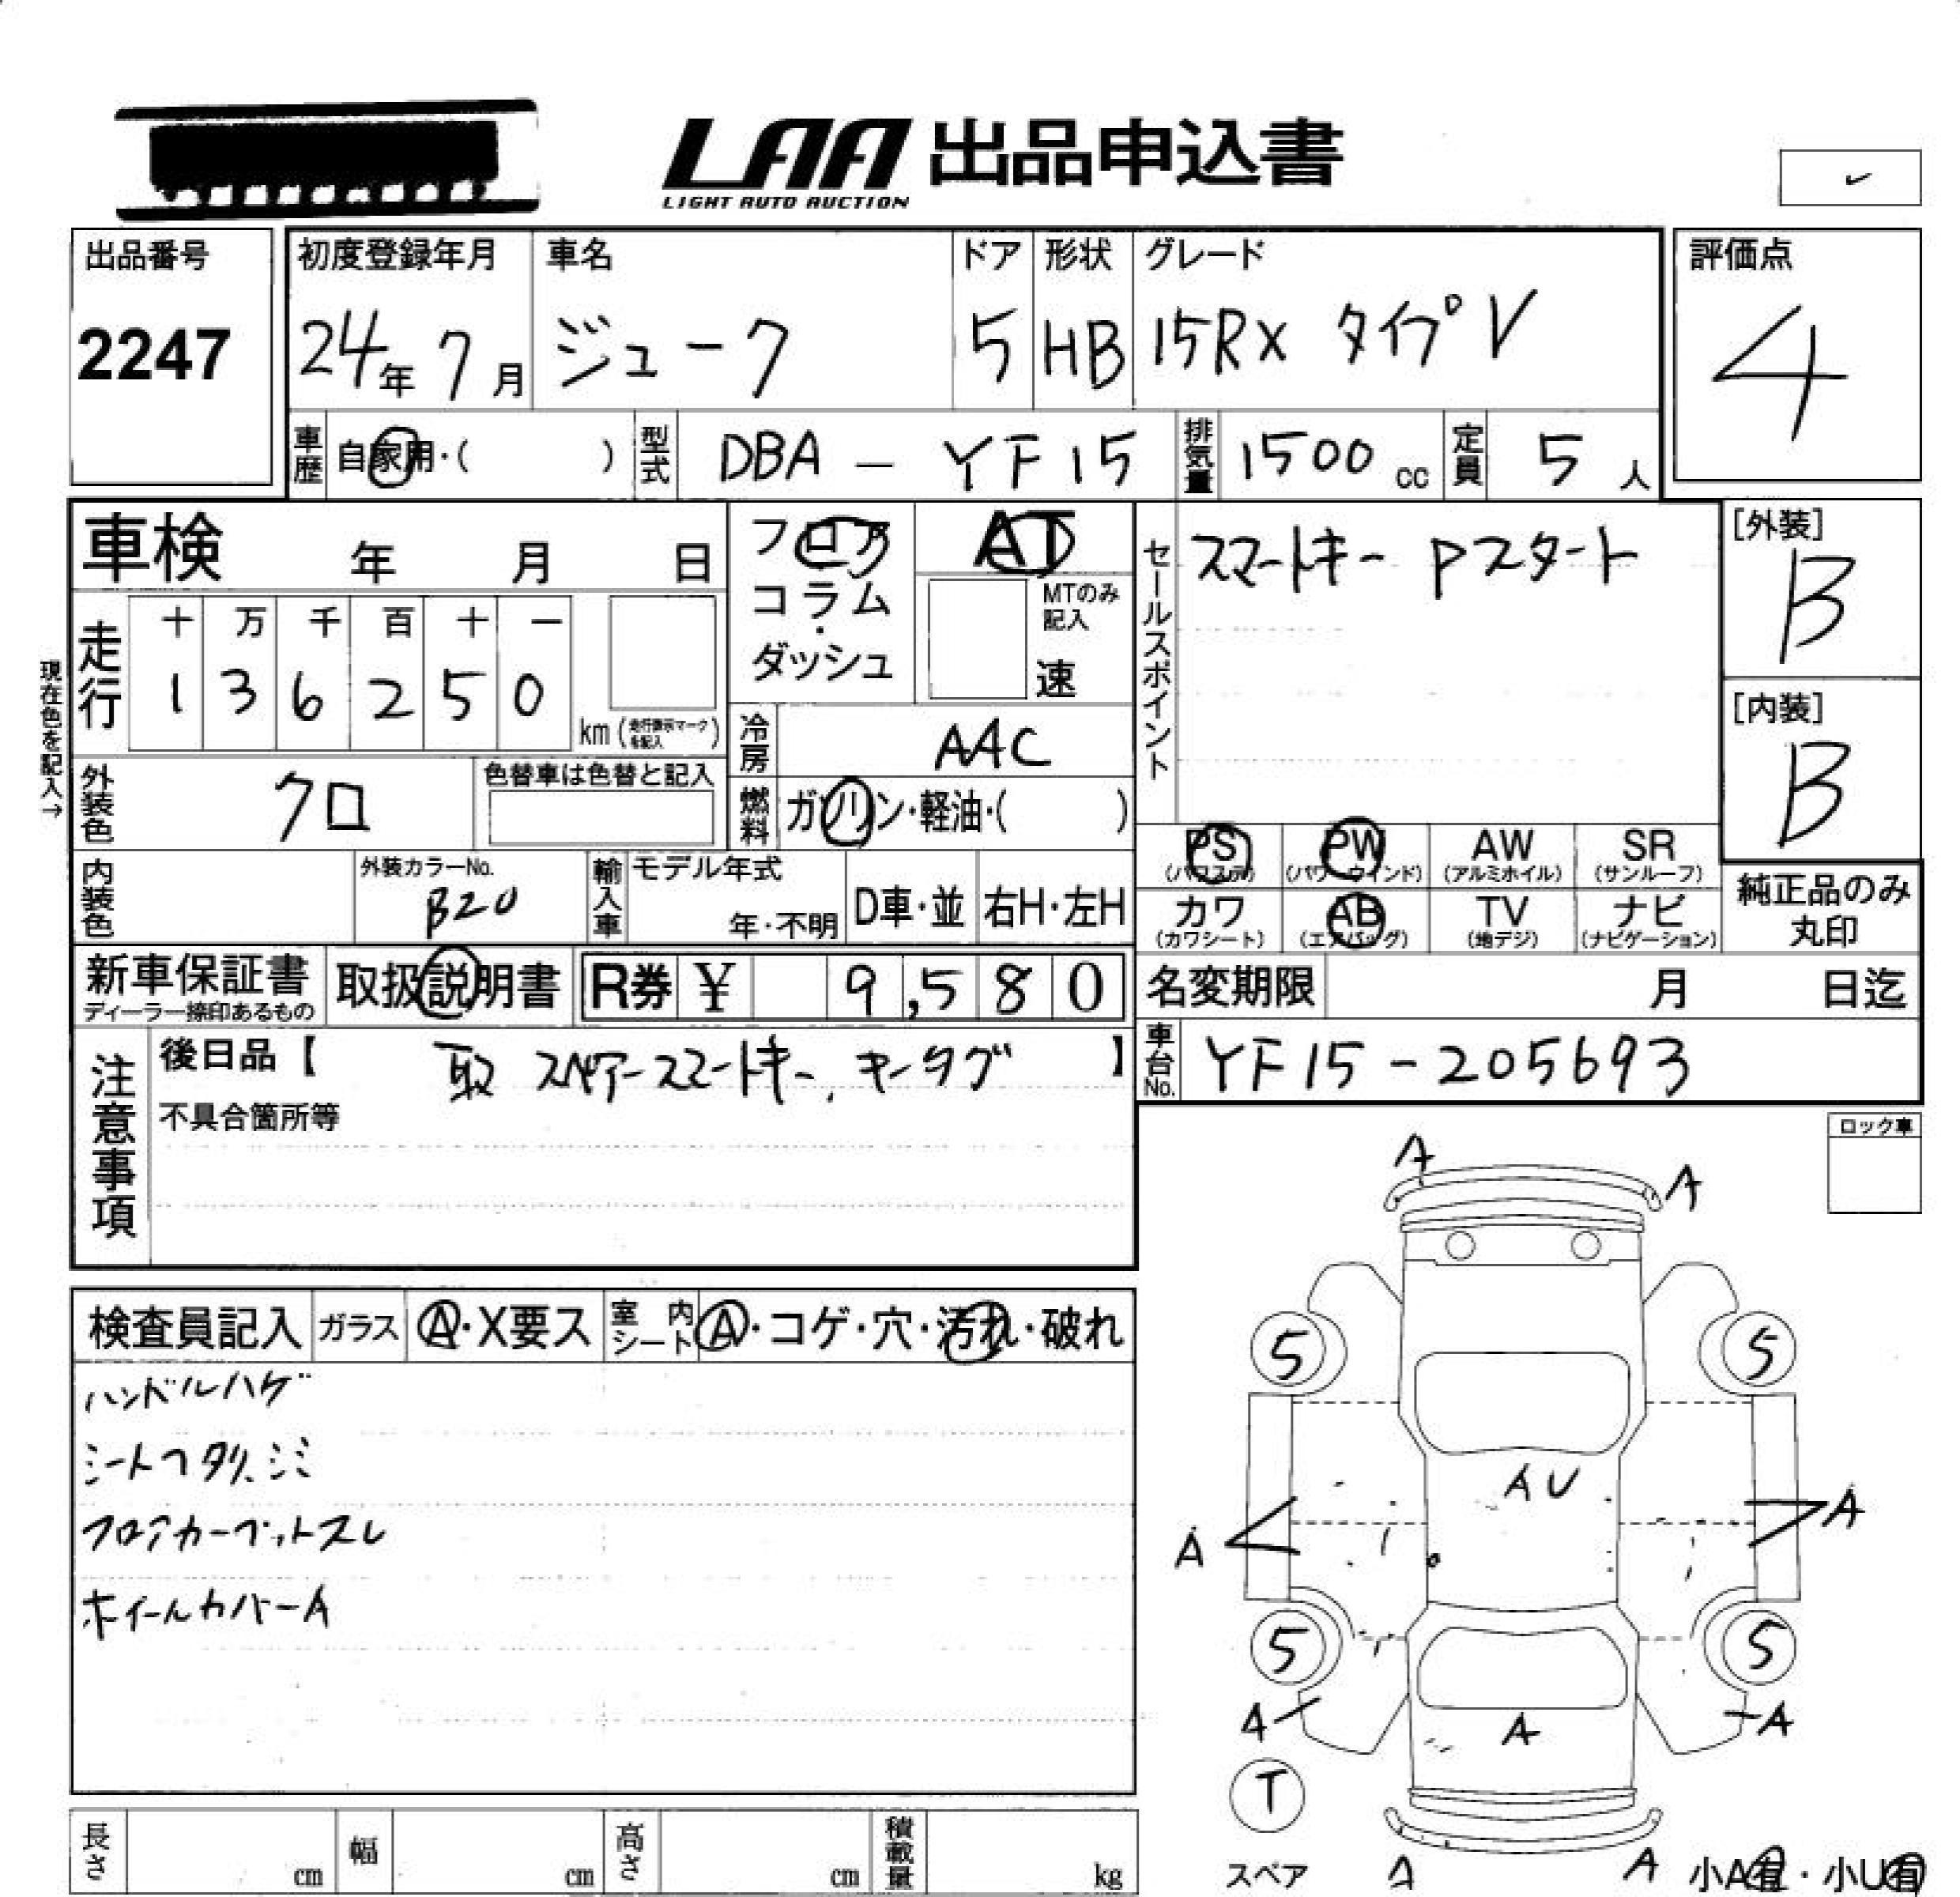 LAA 出品申込書
LIGHT AUTO AUCTION
出品番号
2247
初度登録年月
24年 7月
車名
ジューク
ドア
5
形状
HB
グレード
15RX タイプV
評価点
4
車歴 自家用・( )
型式 DBA - YF15
排気量 1500 cc
定員 5 人
車検 年 月 日
フロア
コラム
・
ダッシュ
AT
MTのみ
記入
速
セールスポイント
スマートキー Pスタート
[外装]
B
[内装]
B
現在色を記入→
走行
十 万 千 百 十 一
1 3 6 2 5 0
km (走行表示マークを記入)
冷房 AAC
外装色 クロ
色替車は色替と記入
燃料 ガソリン・軽油・( )
PS (パワステ)
PW (パワーウインド)
AW (アルミホイル)
SR (サンルーフ)
カワ (カワシート)
AB (エアバッグ)
TV (地デジ)
ナビ (ナビゲーション)
純正品のみ
丸印
内装色
外装カラーNo.
B20
輸入車
モデル年式
年・不明
D車・並
右H・左H
新車保証書
ディーラー捺印あるもの
取扱説明書
R券 ¥ 9,580
名変期限 月 日迄
車台No. YF15-205693
注意事項
後日品【 取 スペアースマートキー、キータグ 】
不具合箇所等
ロック車
検査員記入
ガラス A・X要ス
室内シート A・コゲ・穴・汚れ・破れ
ハンドルハゲ
シートヘタリ、シミ
フロアカーペットスレ
ホイールカバーA
A
A
5
5
AU
A
A
5
5
A
A
A
T
スペア
A
A
小A有・小U有
長さ cm
幅 cm
高さ cm
積載量 kg